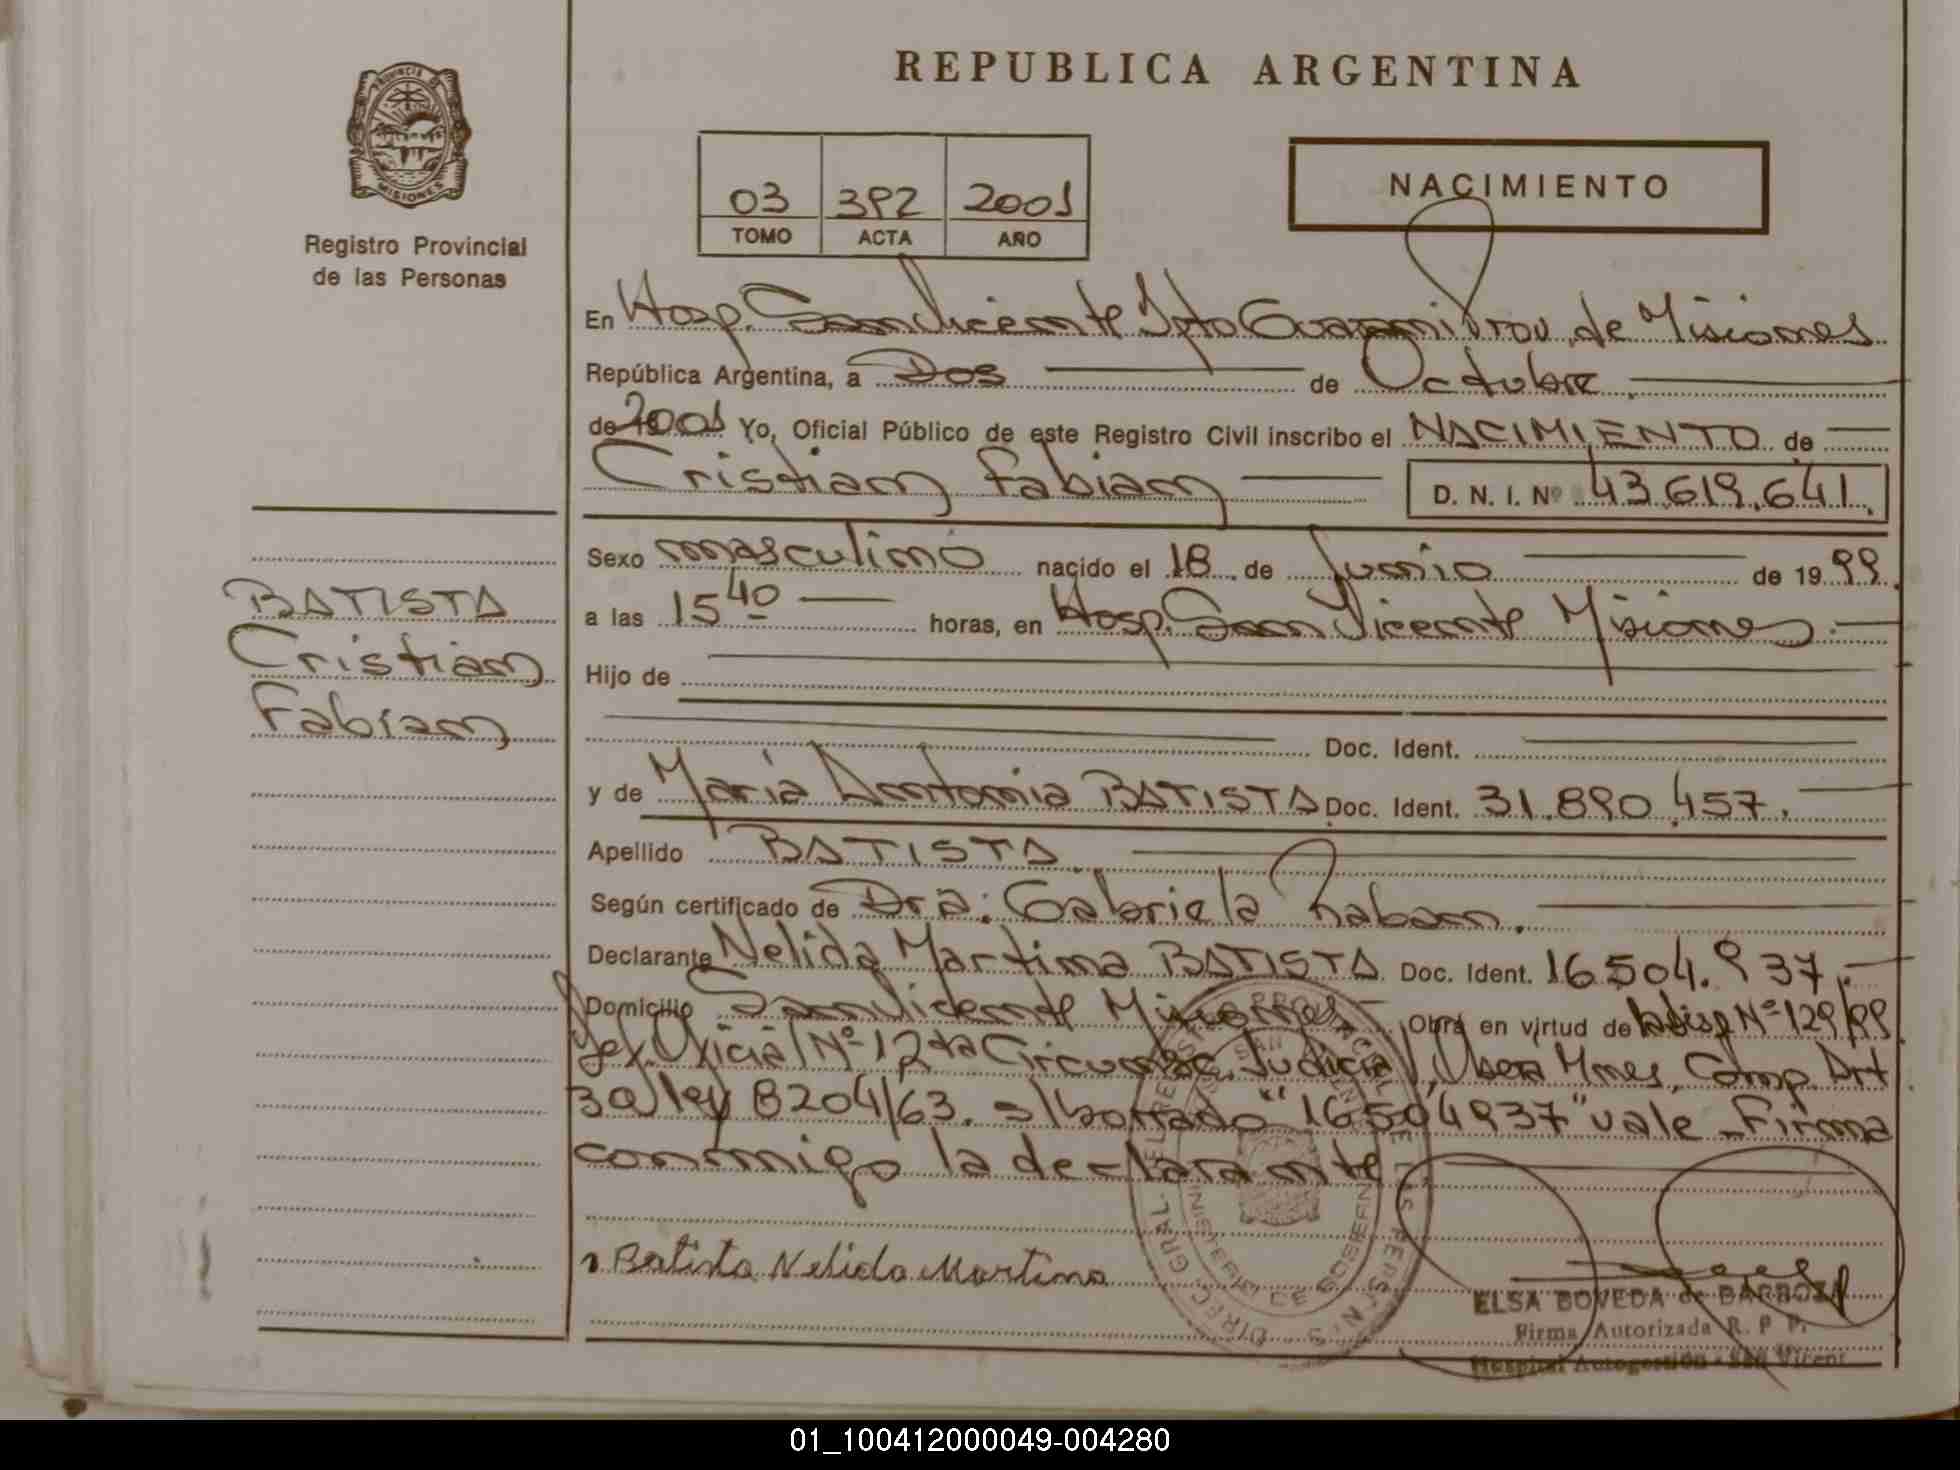 REPUBLICA ARGENTINA
PROVINCIA DE
MISIONES
Registro Provincial
de las Personas
03 392 2001
TOMO ACTA AÑO
NACIMIENTO
En Hosp. San Vicente Dpto Guarani Prov. de Misiones
República Argentina, a Dos de Octubre
de 2001 Yo, Oficial Público de este Registro Civil inscribo el NACIMIENTO de
Cristian Fabian D. N. I. Nº 43.619.641.
Sexo masculino nacido el 18 de Junio de 1999.
a las 15 40 horas, en Hosp. San Vicente Misiones.
Hijo de
Doc. Ident.
y de Maria Antonia BATISTA Doc. Ident. 31.890.457.
Apellido BATISTA
Según certificado de Dra: Gabriela Raban.
Declarante Nelida Martina BATISTA Doc. Ident. 16504.937.
Domicilio San Vicente Misiones Obra en virtud de la disp Nº 129/99
Nº 12 4ta Circunsc. Judicial, Obera Mnes, Comp. Art
30 ley 8204/63. s/borrado "16504937" vale Firma
conmigo la declarante
Batista Nelida Martina
ELSA BOVEDA de BARBOZA
Firma Autorizada R. P. P.
Hospital Autogestión - San Vicent
BATISTA
Cristian
Fabian
01_100412000049-004280